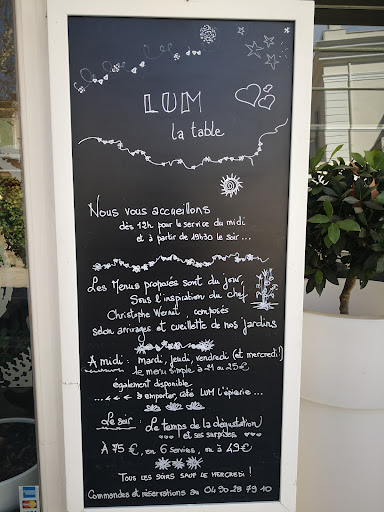 LUM
la table
Nous vous accueillons
dès 12h pour le service du midi
et à partir de 19h30 le soir...
Les Menus proposés sont du jour,
Sous l'inspiration du chef
Christophe Wernet, composés
selon arrivages et cueillette de nos jardins
A midi : mardi, jeudi, vendredi (et mercredi!)
le menu simple à 21 ou 25€
également disponible
à emporter, côté LUM l'épicerie...
Le soir : Le temps de la dégustation
et ses surprises
À 75 €, en 6 services, ou à 49€
Tous les soirs sauf le mercredi !
Commandes et réservations au 04 90 28 79 10